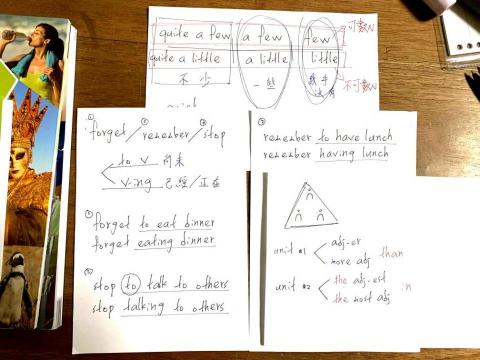 quite a few a few few 可數N
quite a little a little little 不可數N
不少 一些 幾乎沒有
① forget / ② remember / ③ stop
to V 尚未
V-ing 已經/正在
① forget to eat dinner
forget eating dinner
stop to talk to others
stop talking to others
② remember to have lunch
remember having lunch
unit #1 adj-er than
more adj
unit #2 the adj-est in
the most adj